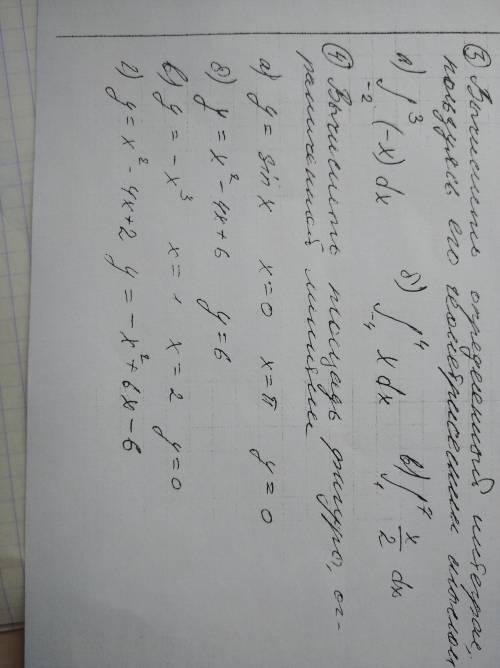 ③ Вычислить определенный интеграл,
пользуясь его геометрическим смыслом
а) ∫₋₂³ (-x) dx б) ∫₋₄⁴ x dx в) ∫₁⁷ x/2 dx
④ Вычислить площадь фигуры, ог-
раниченной линиями
а) y = sin x x = 0 x = π y = 0
б) y = x² - 4x + 6 y = 6
в) y = -x³ x = 1 x = 2 y = 0
г) y = x² - 4x + 2 y = -x² + 6x - 6